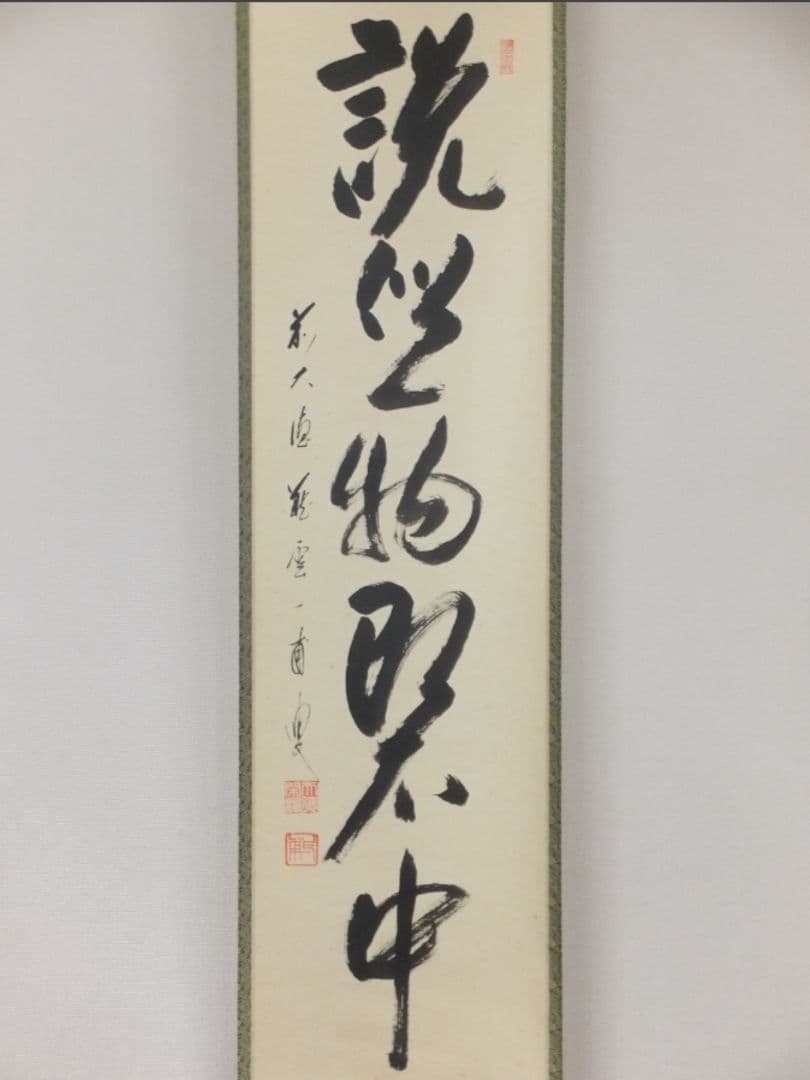 説似一物即不中
前大徳龍雲一甫叟